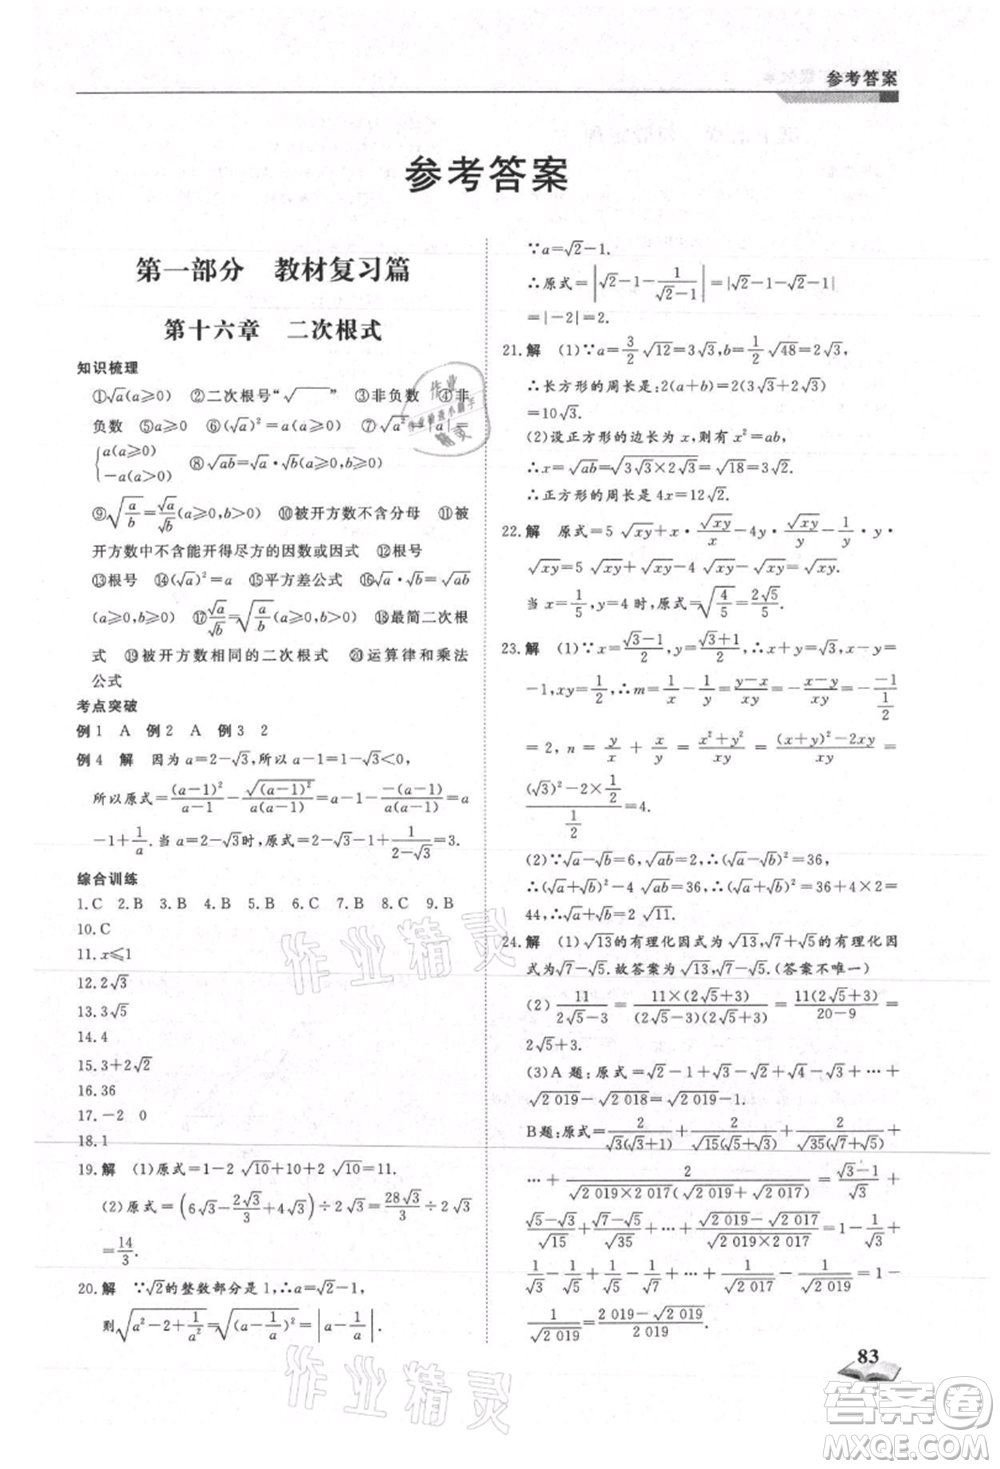 参考答案
参考答案
第一部分 教材复习篇
第十六章 二次根式
知识梳理
①√a(a≥0) ②二次根号“√ ” ③非负数 ④非
负数 ⑤a(a≥0) ⑥(√a)²=a ⑦√a²=|a|=
{a(a≥0) −a(a<0) ⑧√ab=√a·√b(a≥0,b≥0)
⑨√(a/b)=√a/√b(a≥0,b>0) ⑩被开方数不含分母 ⑪被
开方数中不含能开得尽方的因数或因式 ⑫根号
⑬根号 ⑭(√a)²=a ⑮平方差公式 ⑯√a·√b=√ab
(a≥0,b≥0) ⑰√a/√b=√(a/b)(a≥0,b>0) ⑱最简二次根
式 ⑲被开方数相同的二次根式 ⑳运算律和乘法
公式
考点突破
例1 A 例2 A 例3 2
例4 解 因为a=2−√3,所以a−1=1−√3<0.
所以原式=(a−1)²/(a−1)−√(a−1)²/(a(a−1))=a−1−−(a−1)/(a(a−1))=a
−1+1/a.当a=2−√3时,原式=2−√3−1+1/(2−√3)=3.
综合训练
1.C 2.B 3.B 4.B 5.B 6.D 7.C 8.C 9.B
10.C
11.x≤1
12.2√3
13.3√5
14.4
15.3+2√2
16.36
17.−2 0
18.1
19.解 (1)原式=1−2√10+2√10+10=11.
(2)原式=(6√3−2√3/3+4√3)÷2√3=28√3/3÷2√3
=14/3.
20.解 ∵√2的整数部分是1,∴a=√2−1,
则√(a²−2+1/a²)=√(a−1/a)²=|a−1/a|
∵a=√2−1.
∴原式=|√2−1−1/(√2−1)|=|√2−1−√2−1|
=|−2|=2.
21.解 (1)∵a=3/2√12=3√3,b=1/2√48=2√3,
∴长方形的周长是:2(a+b)=2(3√3+2√3)
=10√3.
(2)设正方形的边长为x,则有x²=ab,
∴x=√ab=√(3√3×2√3)=√18=3√2,
∴正方形的周长是4x=12√2.
22.解 原式=5√xy+x·√xy/x−4y·√xy/y−1/y·y·
√xy=5√xy+√xy−4√xy−√xy=√xy.
当x=1/5,y=4时,原式=√(4/5)=2√5/5.
23.解 (1)∵x=(√3−1)/2,y=(√3+1)/2∴x+y=√3,x−y=
−1,xy=1/2∴m=1/x−1/y=y/xy−x/xy=(y−x)/xy=−(−1)/(1/2)
=2,n=y/x+x/y=(x²+y²)/xy=((x+y)²−2xy)/xy=
((√3)²−2×1/2)/(1/2)=4.
(2)∵√a−√b=6,√ab=2,∴(√a−√b)²=36,
∴(√a+√b)²−4√ab=36,∴(√a+√b)²=36+4×2=
44,∴√a+√b=2√11.
24.解 (1)√13的有理化因式为√13,√7+√5的有理化因
式为√7−√5.故答案为√13,√7−√5.(答案不唯一)
(2)11/(2√5−3)=11(2√5+3)/((2√5−3)(2√5+3))=11(2√5+3)/(20−9)=
2√5+3.
(3)A题:原式=√2−1+√3−√2+√4−√3+…+
√2 019−√2 018=√2 019−1.
B题:原式=2/(√3(√3+1))+2/(√15(√5+√3))+2/(√35(√7+√5))+
…+2/(√2 019×2 017(√2 019+√2 017))=(√3−1)/√3+
(√5−√3)/(√5√3)+(√7−√5)/(√7√5)+…+(√2 019−√2 017)/√2 019×2 017=1−1/√3+
1/√3−1/√5+1/√5−1/√7+…+1/√2 017−1/√2 019=1−
1/√2 019=1−√2 019/2 019.
83
作业精灵
作业精灵
答案圈
MXQE.COM